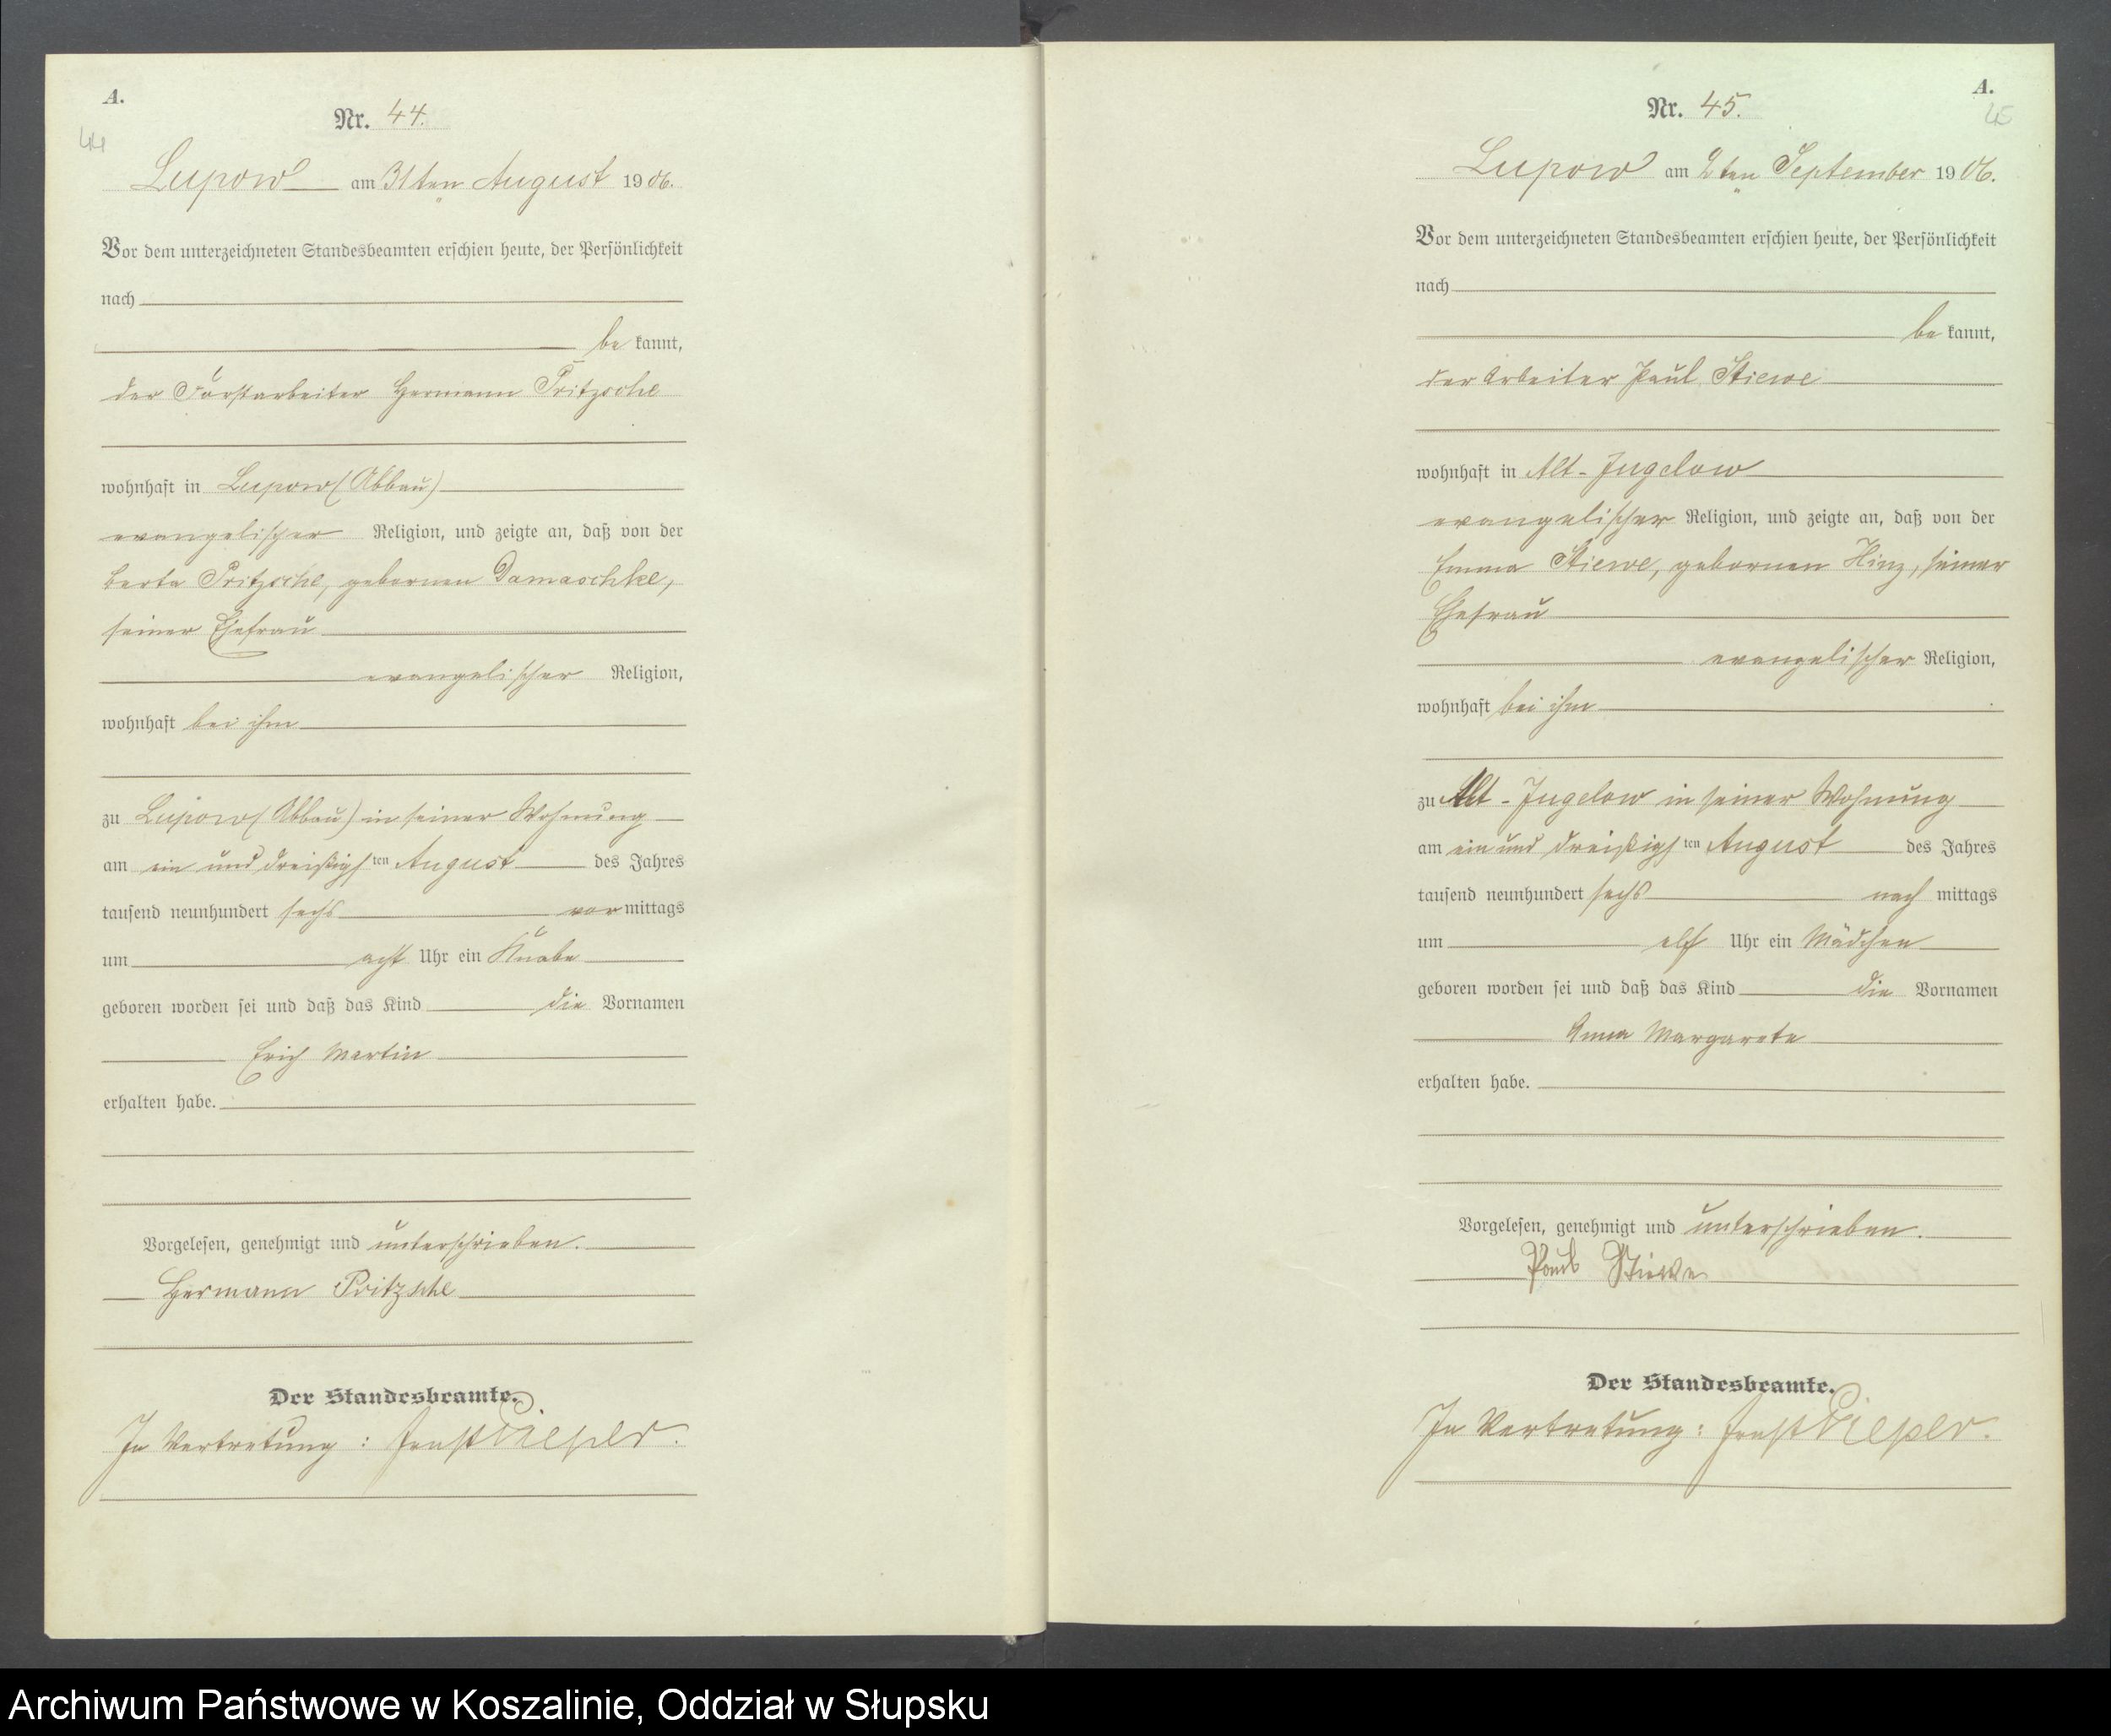 A.
44
Nr. 44.
Lupow am 31ten August 1906.
Vor dem unterzeichneten Standesbeamten erschien heute, der Persönlichkeit
nach
be kannt,
der Forstarbeiter Hermann Pritzsche
wohnhaft in Lupow (Abbau)
evangelischer Religion, und zeigte an, daß von der
Berta Pritzsche, gebornen Damaschke,
seiner Ehefrau
evangelischer Religion,
wohnhaft bei ihm
zu Lupow (Abbau) in seiner Wohnung
am ein und dreißigsten August des Jahres
tausend neunhundert sechs vormittags
um acht Uhr ein Knabe
geboren worden sei und daß das Kind die Vornamen
Erich Martin
erhalten habe.
Vorgelesen, genehmigt und unterschrieben.
Hermann Pritzsche
Der Standesbeamte.
In Vertretung: Ernst Pieper.
A.
45
Nr. 45.
Lupow am 2ten September 1906.
Vor dem unterzeichneten Standesbeamten erschien heute, der Persönlichkeit
nach
be kannt,
der Arbeiter Paul Stiewe
wohnhaft in Alt-Jugelow
evangelischer Religion, und zeigte an, daß von der
Emma Stiewe, gebornen Hinz, seiner
Ehefrau
evangelischer Religion,
wohnhaft bei ihm
zu Alt-Jugelow in seiner Wohnung
am ein und dreißigsten August des Jahres
tausend neunhundert sechs nach mittags
um elf Uhr ein Mädchen
geboren worden sei und daß das Kind die Vornamen
Anna Margarete
erhalten habe.
Vorgelesen, genehmigt und unterschrieben.
Paul Stiewe
Der Standesbeamte.
In Vertretung: Ernst Pieper.
Archiwum Państwowe w Koszalinie, Oddział w Słupsku